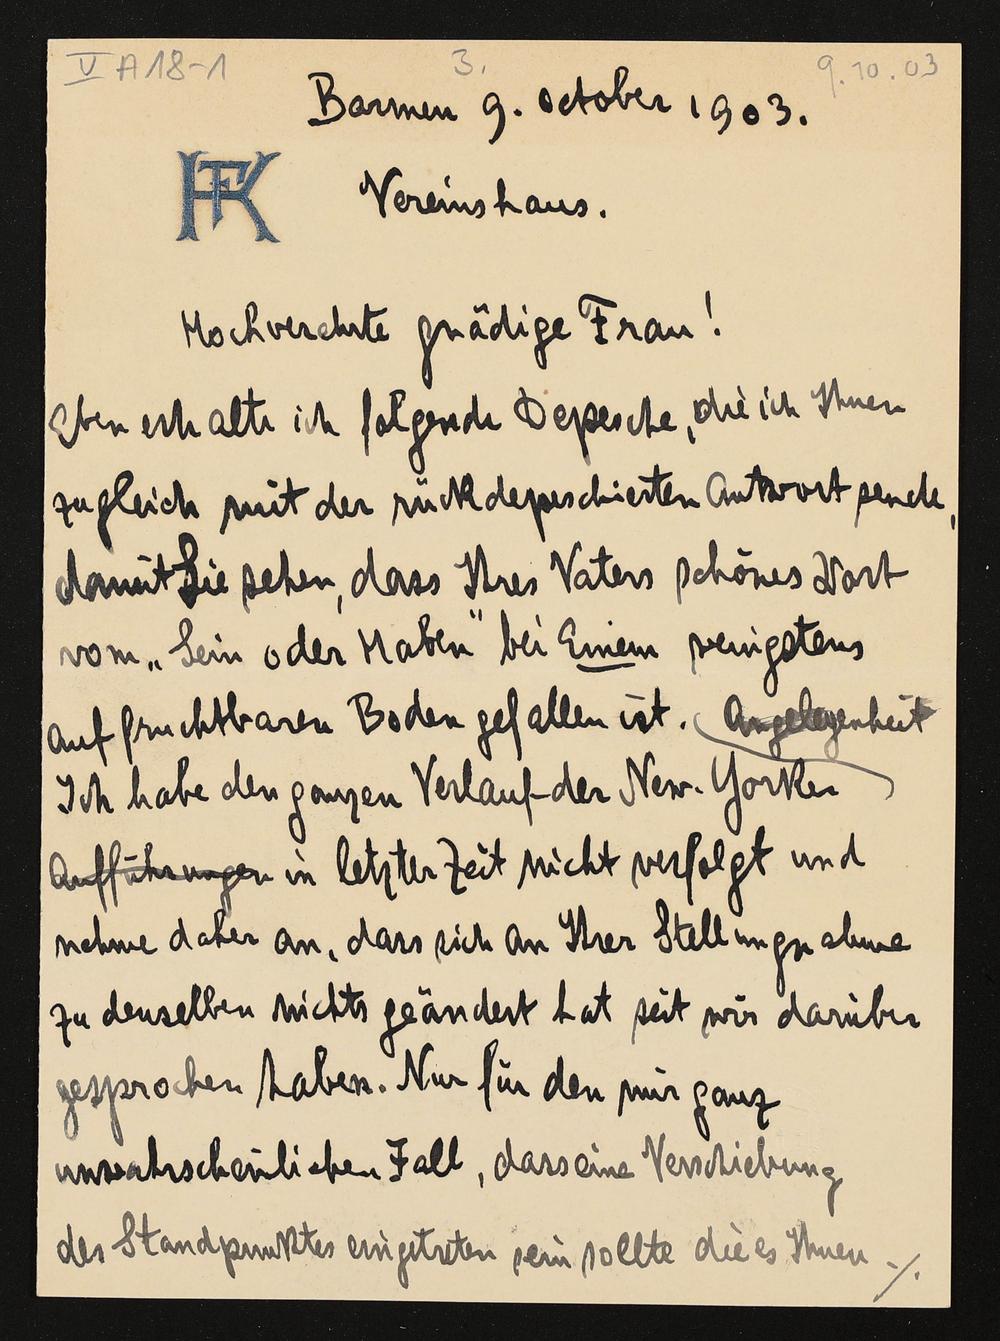 V A 18-1 3. 9.10.03
Barmen 9. October 1903.
FK
Vereinshaus.
Hochverehrte gnädige Frau!
Eben erhalte ich folgende Depesche, die ich Ihnen
zugleich mit der rückdepeschierten Antwort sende,
damit Sie sehen, dass Ihres Vaters schönes Wort
vom „Sein oder Haben" bei Einem wenigstens
auf fruchtbaren Boden gefallen ist. Angelegenheit
Ich habe den ganzen Verlauf der New-Yorker
Aufführungen in letzter Zeit nicht verfolgt und
nehme daher an, dass sich an Ihrer Stellungnahme
zu denselben nichts geändert hat seit wir darüber
gesprochen haben. Nur für den mir ganz
unwahrscheinlichen Fall, dass eine Verschiebung
des Standpunktes eingetreten sein sollte die es Ihnen ./.